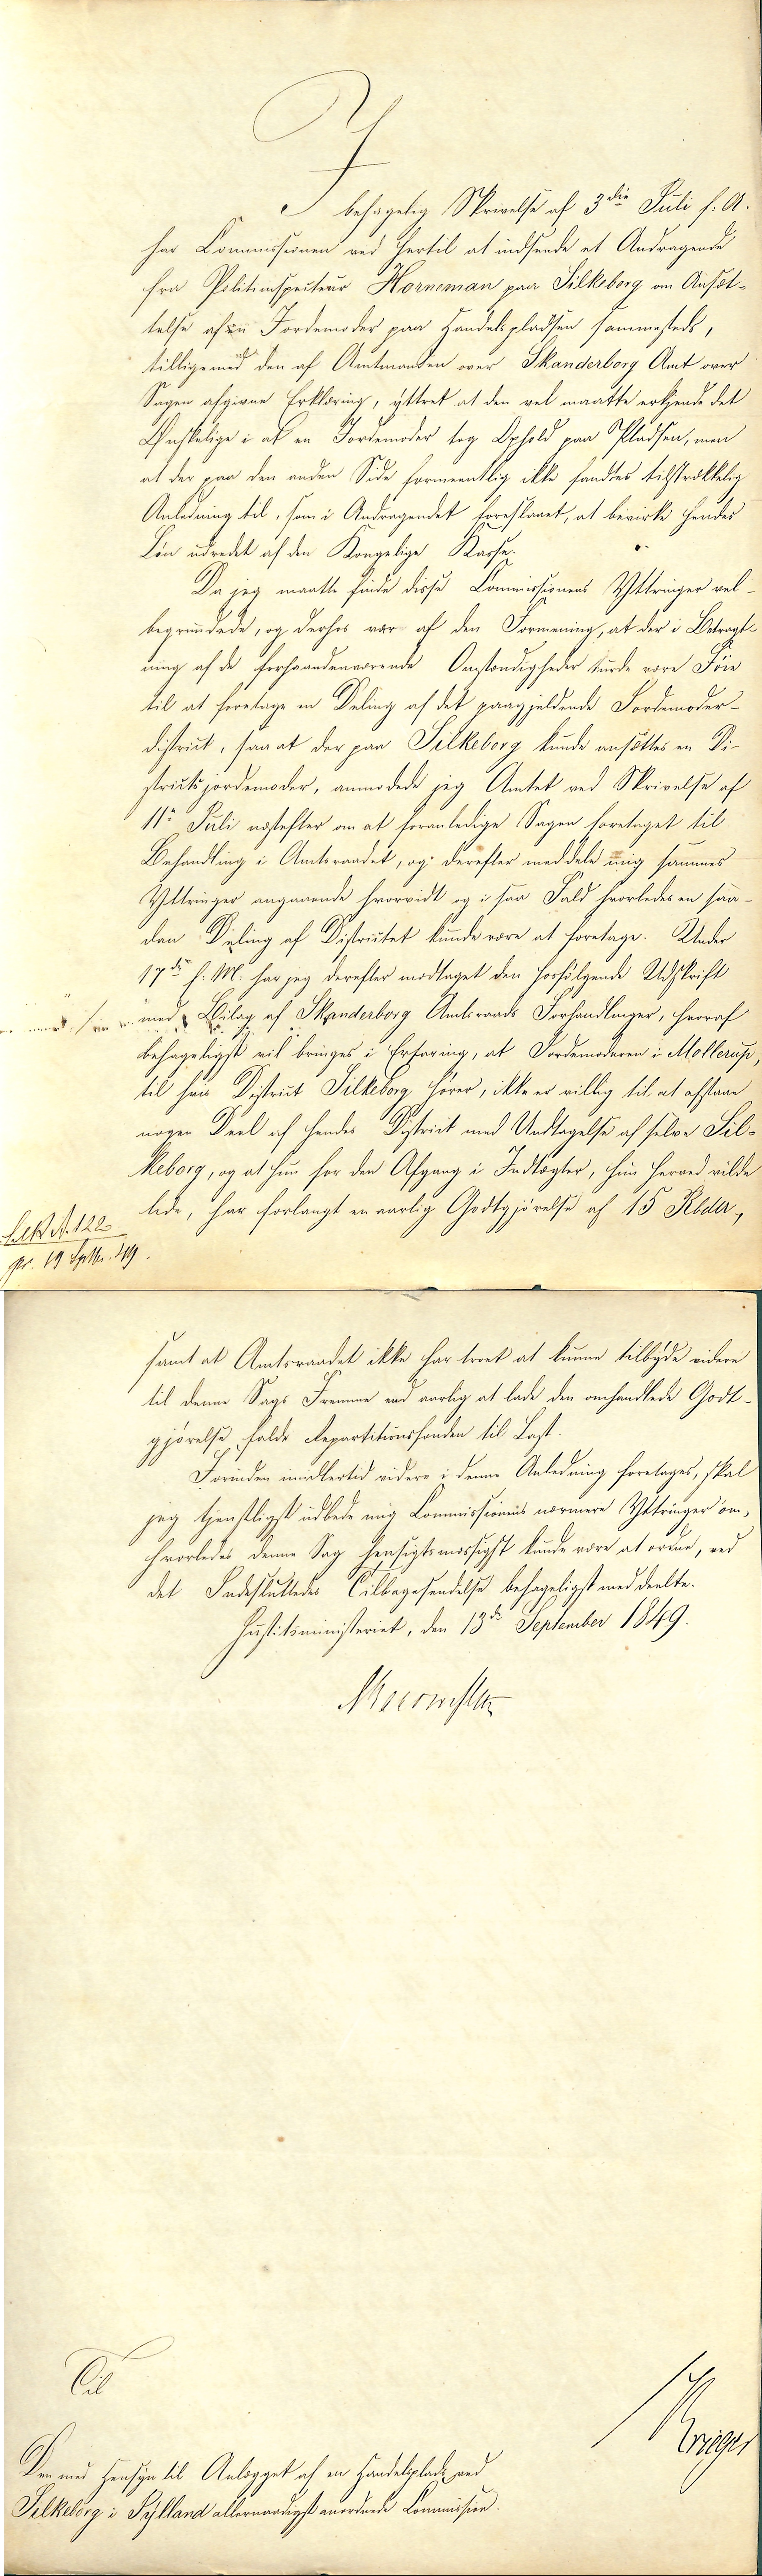 I
behagelig Skrivelse af 3die Juli f: A.
har Commissionen ved hertil at indsende et Andragende
fra Politiinspecteur Horneman paa Silkeborg om Ansæt-
telse af en Jordemoder paa Handelspladsen sammesteds,
tilligemed den af Amtmanden over Skanderborg Amt over
Sagen afgivne Erklæring, yttret at den vel maatte erkjende det
Ønskelige i at en Jordemoder tog Ophold paa Pladsen, men
at der paa den anden Side formeentlig ikke fandtes tilstrækkelig
Anledning til, som i Andragendet foreslaaet, at bevirke hendes
Løn udredet af den Kongelige Kasse.
Da jeg maatte finde disse Commissionens Yttringer vel-
begrundede, og derhos var af den Formening, at der i Betragt-
ning af de forhaandenværende Omstændigheder turde være Føie
til at foretage en Deling af det paagjeldende Jordemoder-
district, saa at der paa Silkeborg kunde ansættes en Di-
strictsjordemoder, anmodede jeg Amtet ved Skrivelse af
11te Juli næstefter om at foranledige Sagen foretaget til
Behandling i Amtsraadet, og derefter meddele mig sammes
Yttringer angaaende hvorvidt og i saa Fald hvorledes en saa-
dan Deling af Districtet kunde være at foretage. Under
17de f. M. har jeg derefter modtaget den hosfølgende Udskrift
med Bilag af Skanderborg Amtsraads Forhandlinger, hvoraf
behageligst vil bringes i Erfaring, at Jordemoderen i Mollerup,
til hvis District Silkeborg hører, ikke er villig til at afstaae
nogen Deel af hendes District med Undtagelse af selve Sil-
keborg, og at hun for den Afgang i Indtægter, hun herved vilde
lide, har forlangt en aarlig Godtgjørelse af 15 Rbdlr,
Silk N. 122
pr. 19 Septbr. 49.
samt at Amtsraadet ikke har troet at kunne tilbyde videre
til denne Sags Fremme end aarlig at lade den omhandlede Godt-
gjørelse falde Repartitionsfonden til Last.
Forinden imidlertid videre i denne Anledning foretages, skal
jeg tjenstligst udbede mig Commissionens nærmere Yttringer om,
hvorledes denne Sag hensigtsmæssigst kunde være at ordne, ved
det Indesluttedes Tilbagesendelse behageligst meddeelte.
Justitsministeriet, den 13de September 1849.
Til
Krieger
Den med Hensyn til Anlægget af en Handelsplads ved
Silkeborg i Jylland allernaadigst anordnede Commission.